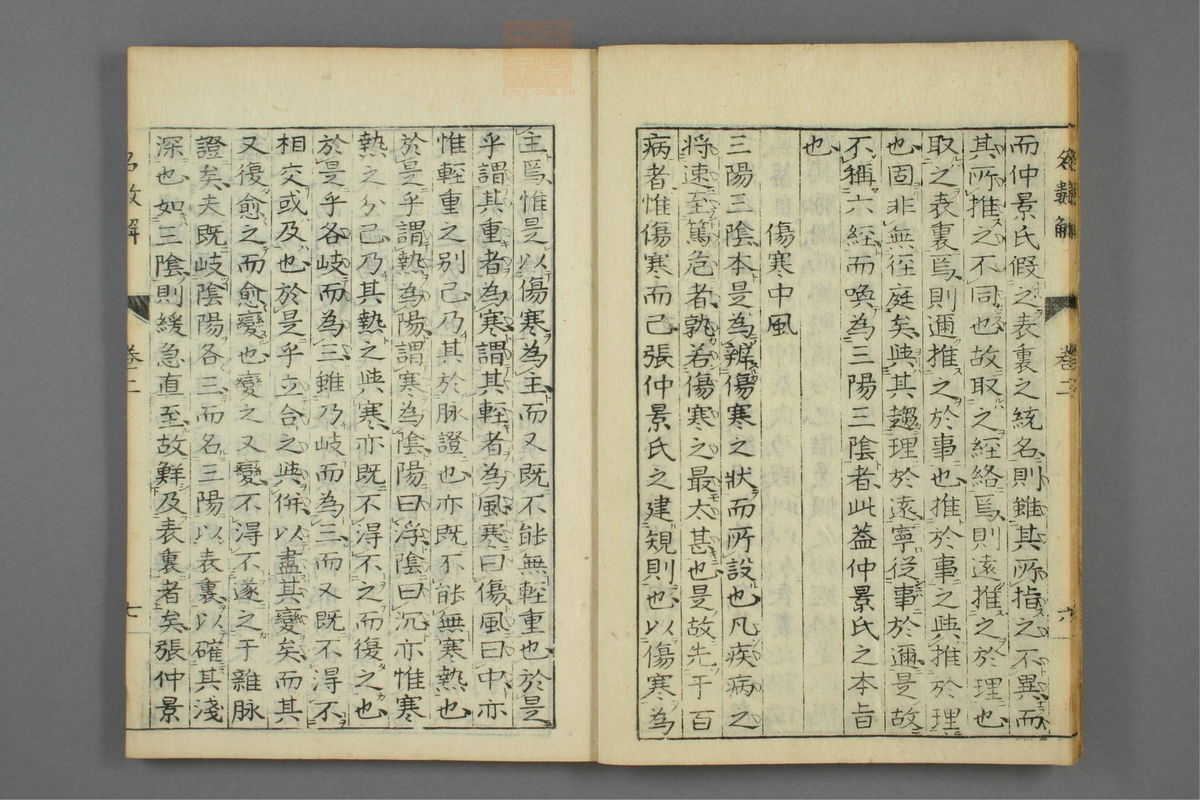 而仲景氏假之表裏之統名則雖其所指之不異而
其所推之不同也故取之經絡焉則遠推之於理也
取之表裏焉則邇推之於事也推於事之與推於理
也固非無徑庭矣與其趨理於遠寧從事於邇是故
不稱六經而喚為三陽三陰者此蓋仲景氏之本旨
也
傷寒中風
三陽三陰本是為辨傷寒之狀而所設也凡疾病之
將速至篤危者孰若傷寒之最太甚也是故先于百
病者惟傷寒而已張仲景氏之建規則也以傷寒為
卷二
六
主焉惟是以傷寒為主而又既不能無輕重也於是
乎謂其重者為寒謂其輕者為風寒曰傷風曰中亦
惟輕重之別已乃其於脉證也亦既不能無寒熱也
於是乎謂熱為陽謂寒為陰陽曰浮陰曰沉亦惟寒
熱之分已乃其熱之與寒亦既不得不之而復之也
於是乎各岐而為三雖乃岐而為三而又既不得不
相交或及也於是乎立合之與併以盡其變矣而其
又復愈之而愈變也變之又變不得不遂之于雜脉
證矣夫既岐陰陽各三而名三陽以表裏以確其淺
深也如三陰則緩急直至故鮮及表裏者矣張仲景
卷二
七